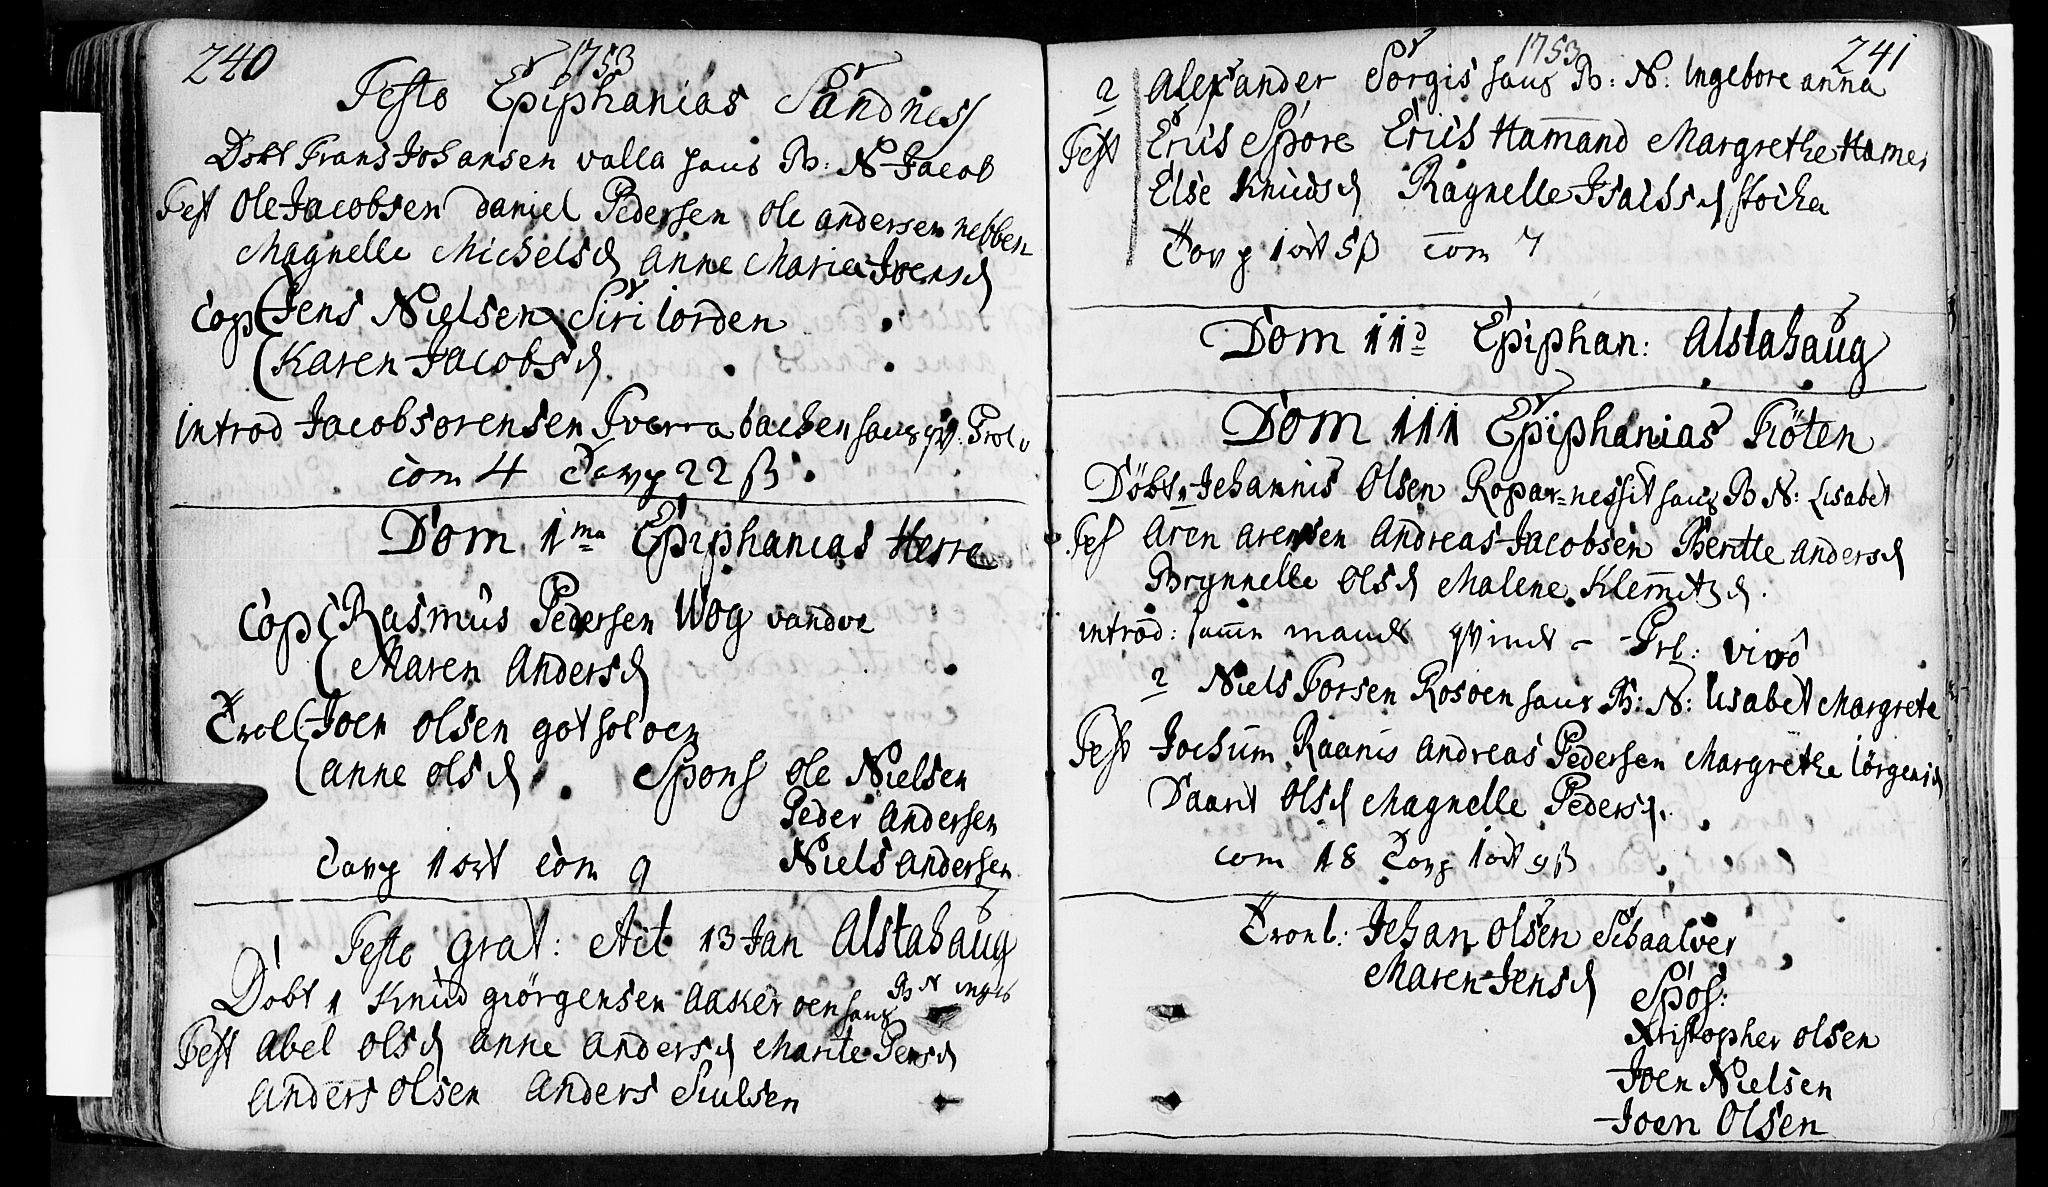 240
1753
Festo Epiphanias Sandnes
Döbt Frans Johansen valla haus B: N Jacob
Test Ole Jacobsen Daniel Pedersen Ole andersen nebben
Magnelle Michelsd anne Maria Joensd
Cop Jens Nielsen Siri Jorden
Karen Jacobsd
introd Jacob Sørensen Tverra bachen haus qv: Prol
com 4 Tavp 22 β
Dom 1ma Epiphanias Herre
Cop Rasmus Pedersen Wog vandve
Maren Andersd
Trol Joen olsen
anne olsd Spons Ole Nielsen
Peder Andersen
Tavp 1 ort com 9 Niels andersen
Festo grat: Act 13 Jan Alstahaug
Döbt 1 Knud giörgensen aaker oen haus B N
Test Abel olsd anne andersd Marite Pensd
anders olsen anders Siulsen
1753
241
2 Alexander Sorgis haus B: N: Ingebore anna
Test Erics Spore Erics Hamand Margrethe Hamer
Else Knudsd Ragnelle Isachsd stocka
Tavp 1 ort 5 β com 7
Dom IId Epiphan: Alstahaug
Dom III Epiphanias Tiöten
Döbt 1 Johannis Olsen Roparnessit haus B N: Lisabet
Tes Aren arensen andreas Jacobsen Beritte andersd
Brynnelle olsd Malene Klemitzd.
introd: samn mands qvind - Prl:
2 Niels Torsen Rosoen haus B: N: Lisabet Margrete
Test Jochum Raanis andreas Pedersen Margrethe Jörgensd
Daarit olsd Magnelle Pedersd.
com 18 Tavp 1 ort 9 β
Trol: Johan olsen Schaalver
Maren Jensd
Spos:
Kristopher olsen
Joen Nielsen
Joen Olsen